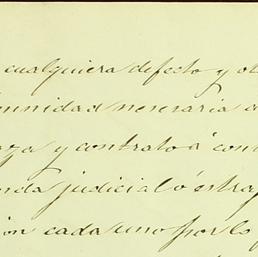 cualquiera defecto y ot
mnidad neseraria
za y contrato a con
nda judicial ó estraj
ion cada uno por lo